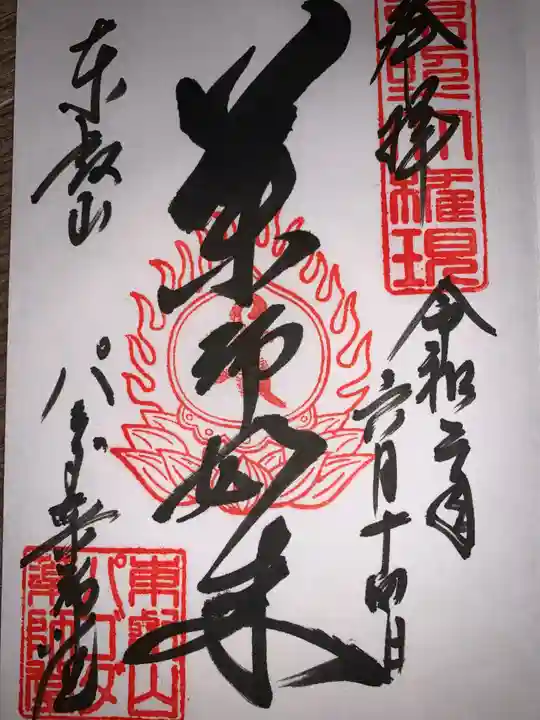 東照大権現
奉拝
令和二年
六月十四日
薬師如来
東叡山
パゴダ薬師堂
東叡山
パゴダ
薬師堂